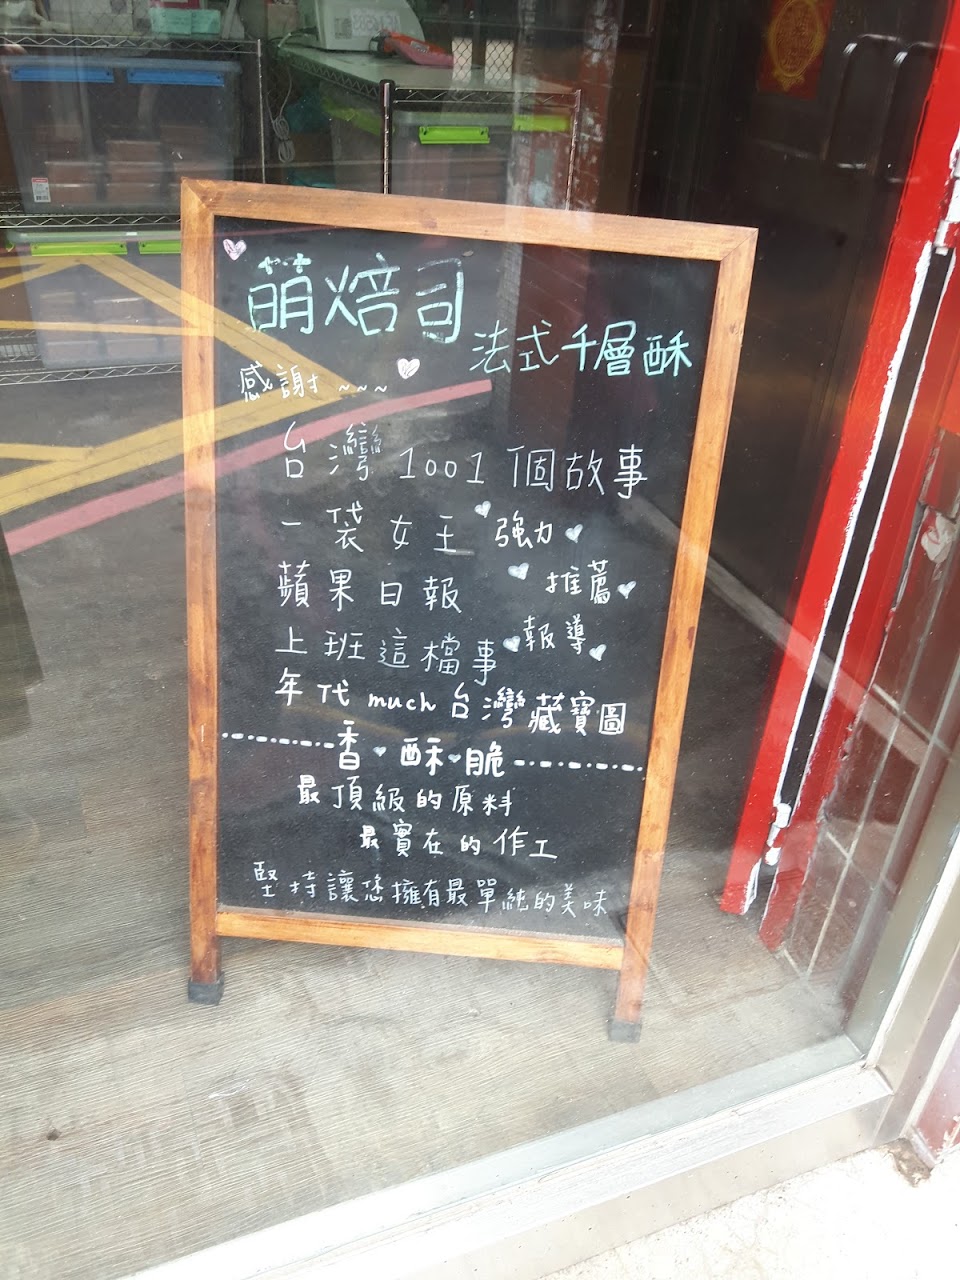 萌焙司
法式千層酥
感謝~~~
台灣1001個故事
一袋女王 強力
蘋果日報 推薦
上班這檔事 報導
年代much台灣藏寶圖
香酥脆
最頂級的原料
最實在的作工
堅持讓您擁有最單純的美味